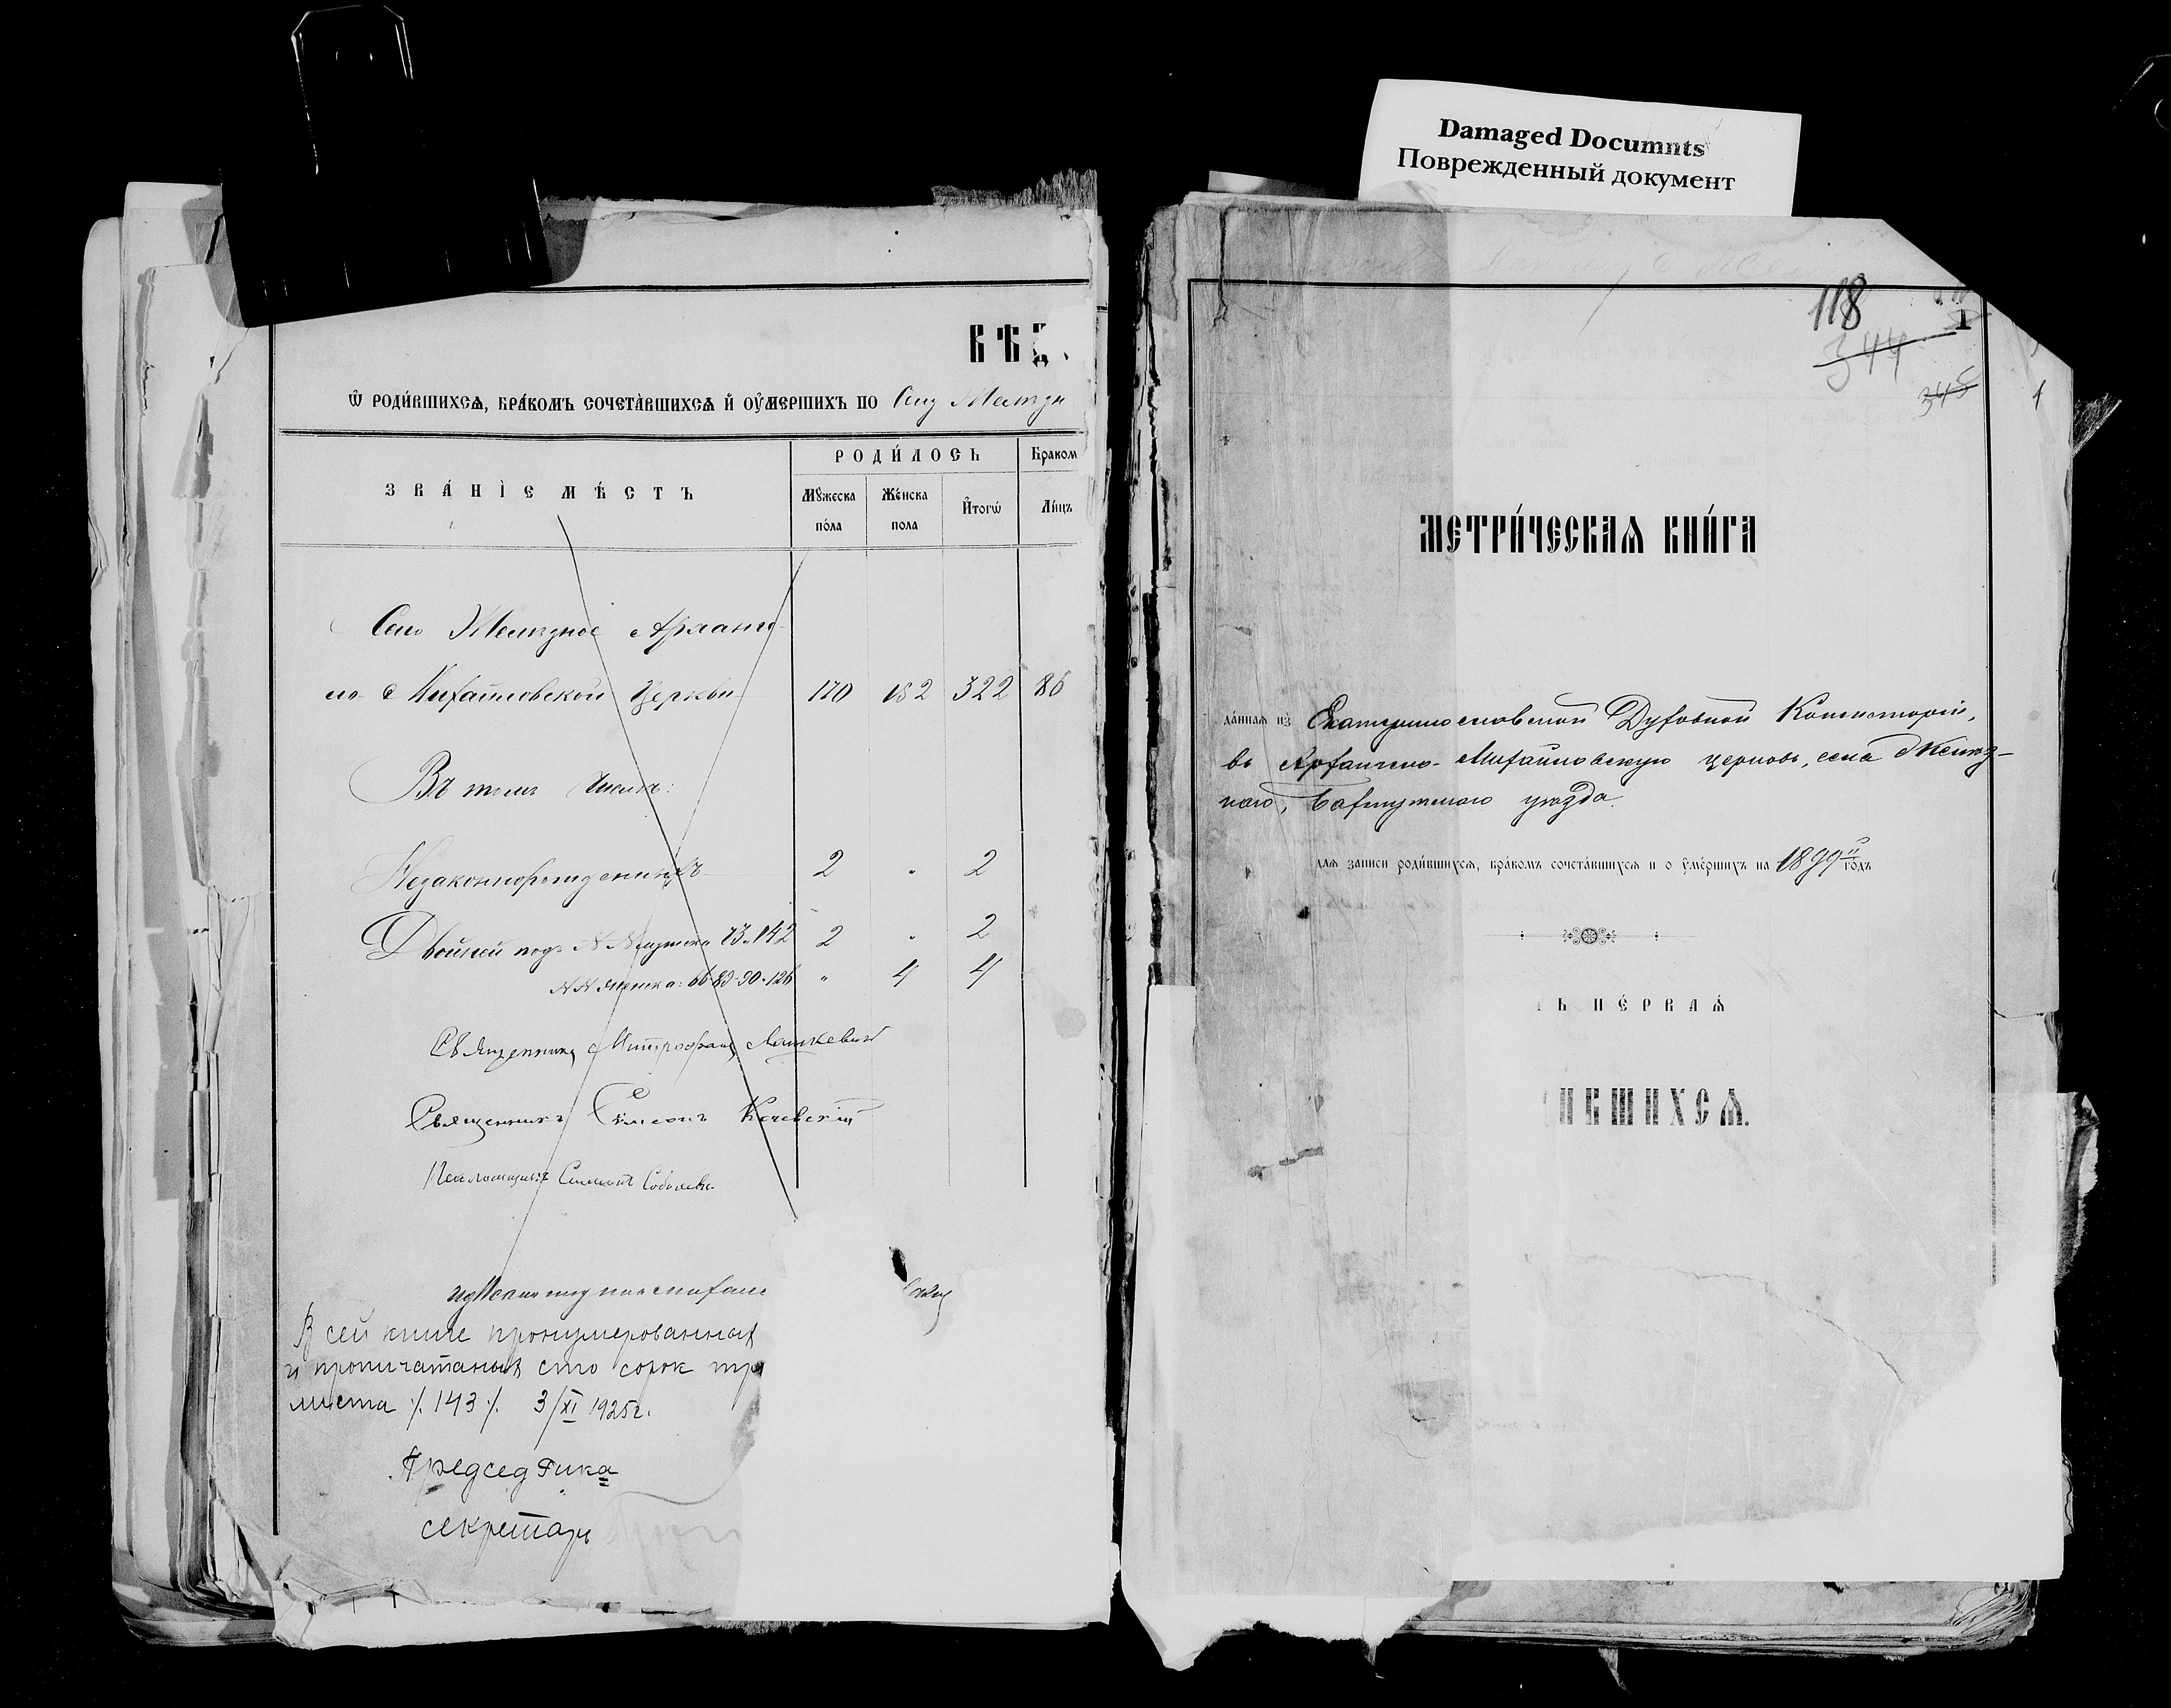 Damaged Documnts
Поврежденный документ
ВѢД
Ѡ РОДИ́ВШИХСѦ, БРА́КОМЪ СОЧЕТА̀ВШИХСѦ И҆ ОУ҆МЕРШИХЪ ПО Селу Желѣзн
ЗВА́НІЕ МѢ́СТЪ
РОДИ́ЛОСЬ
Браком
Мꙋ́жеска по́ла
Же́нска пола
И҆тогѡ̀
Ли́цъ
Село Желѣзное Арханге-
ло-Михайловской Церкви 170 152 322 86
Въ томъ числѣ:
Незаконнорожденныхъ 2 " 2
Двойней подъ №№ мужска 73. 142 2 " 2
№№ женска: 66-89-90-126 " 4 4
Священникъ Митрофанъ
Священникъ Симеонъ
Псаломщикъ
В сей книге пронумерованных
и пропичатаных сто сорок тр
листа /. 143 /. 3/XI 1925г.
Председ Рика
секретарь
118
1
344
345
1
МЕТРИ́ЧЕСКАѦ КНИ́ГА
да́ннаѧ из̾ Екатеринославской Духовной Консисторіи,
въ Архангело-Михайловскую церковь, села Желѣз-
наго, Бахмутскаго уѣзда.
длѧ записи роди́вшихсѧ, бра́комъ сочета́вшихсѧ и о ᲂу҆ме́ршихъ на 1899й годъ
Ь ПЕ́РВАѦ
ИВШИХСѦ.